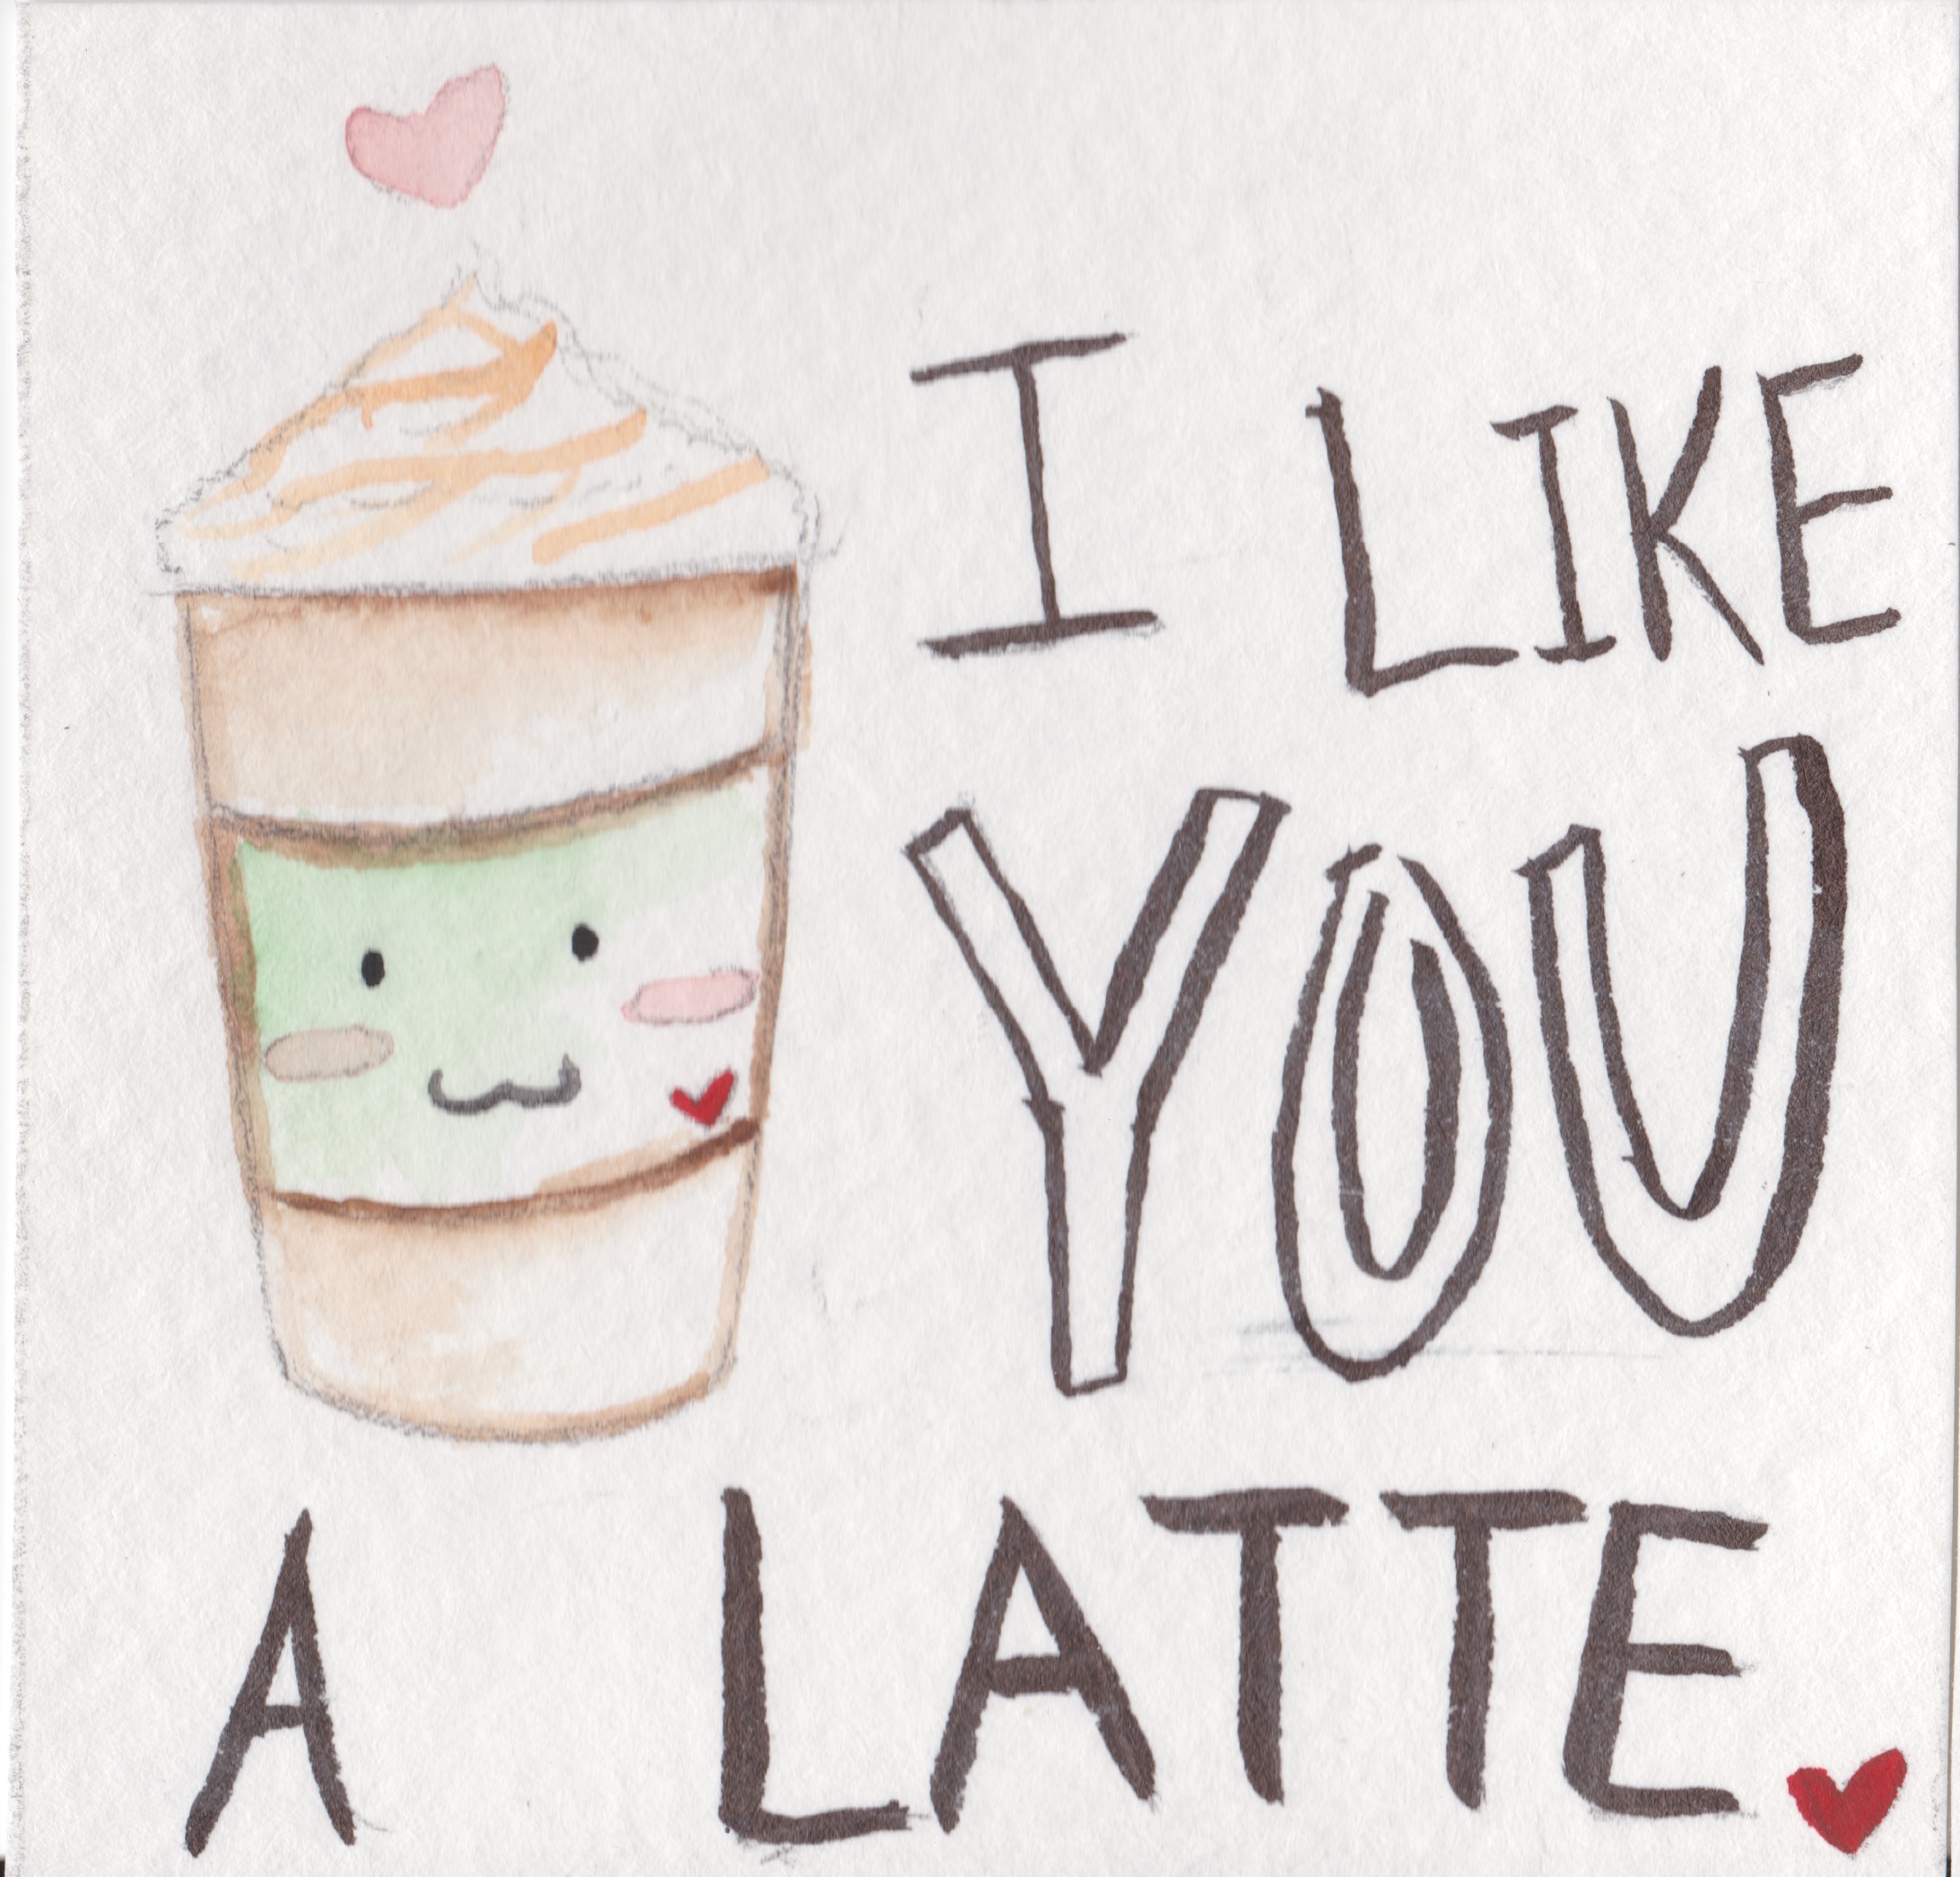 I LIKE
YOU
A LATTE